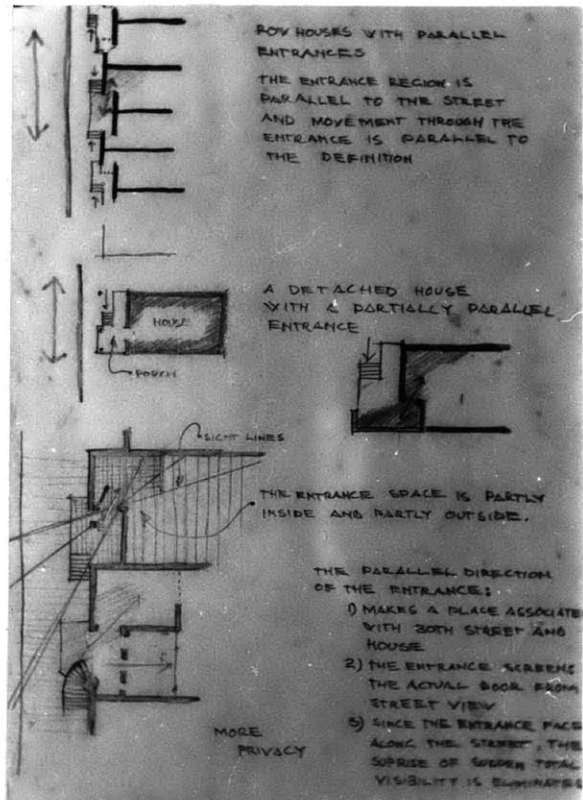 ROW HOUSES WITH PARALLEL
ENTRANCES
THE ENTRANCE REGION IS
PARALLEL TO THE STREET
AND MOVEMENT THROUGH THE
ENTRANCE IS PARALLEL TO
THE DEFINITION
A DETACHED HOUSE
WITH A PARTIALLY PARALLEL
ENTRANCE
HOUSE
PORCH
SIGHT LINES
THE ENTRANCE SPACE IS PARTLY
INSIDE AND PARTLY OUTSIDE.
THE PARALLEL DIRECTION
OF THE ENTRANCE:
1) MAKES A PLACE ASSOCIATE
WITH BOTH STREET AND
HOUSE
2) THE ENTRANCE SCREENS
THE ACTUAL DOOR FROM
STREET VIEW
3) SINCE THE ENTRANCE FACE
ALONG THE STREET, THE
SUPRISE OF SUDDEN TOTAL
VISIBILITY IS ELIMINATED
MORE
PRIVACY